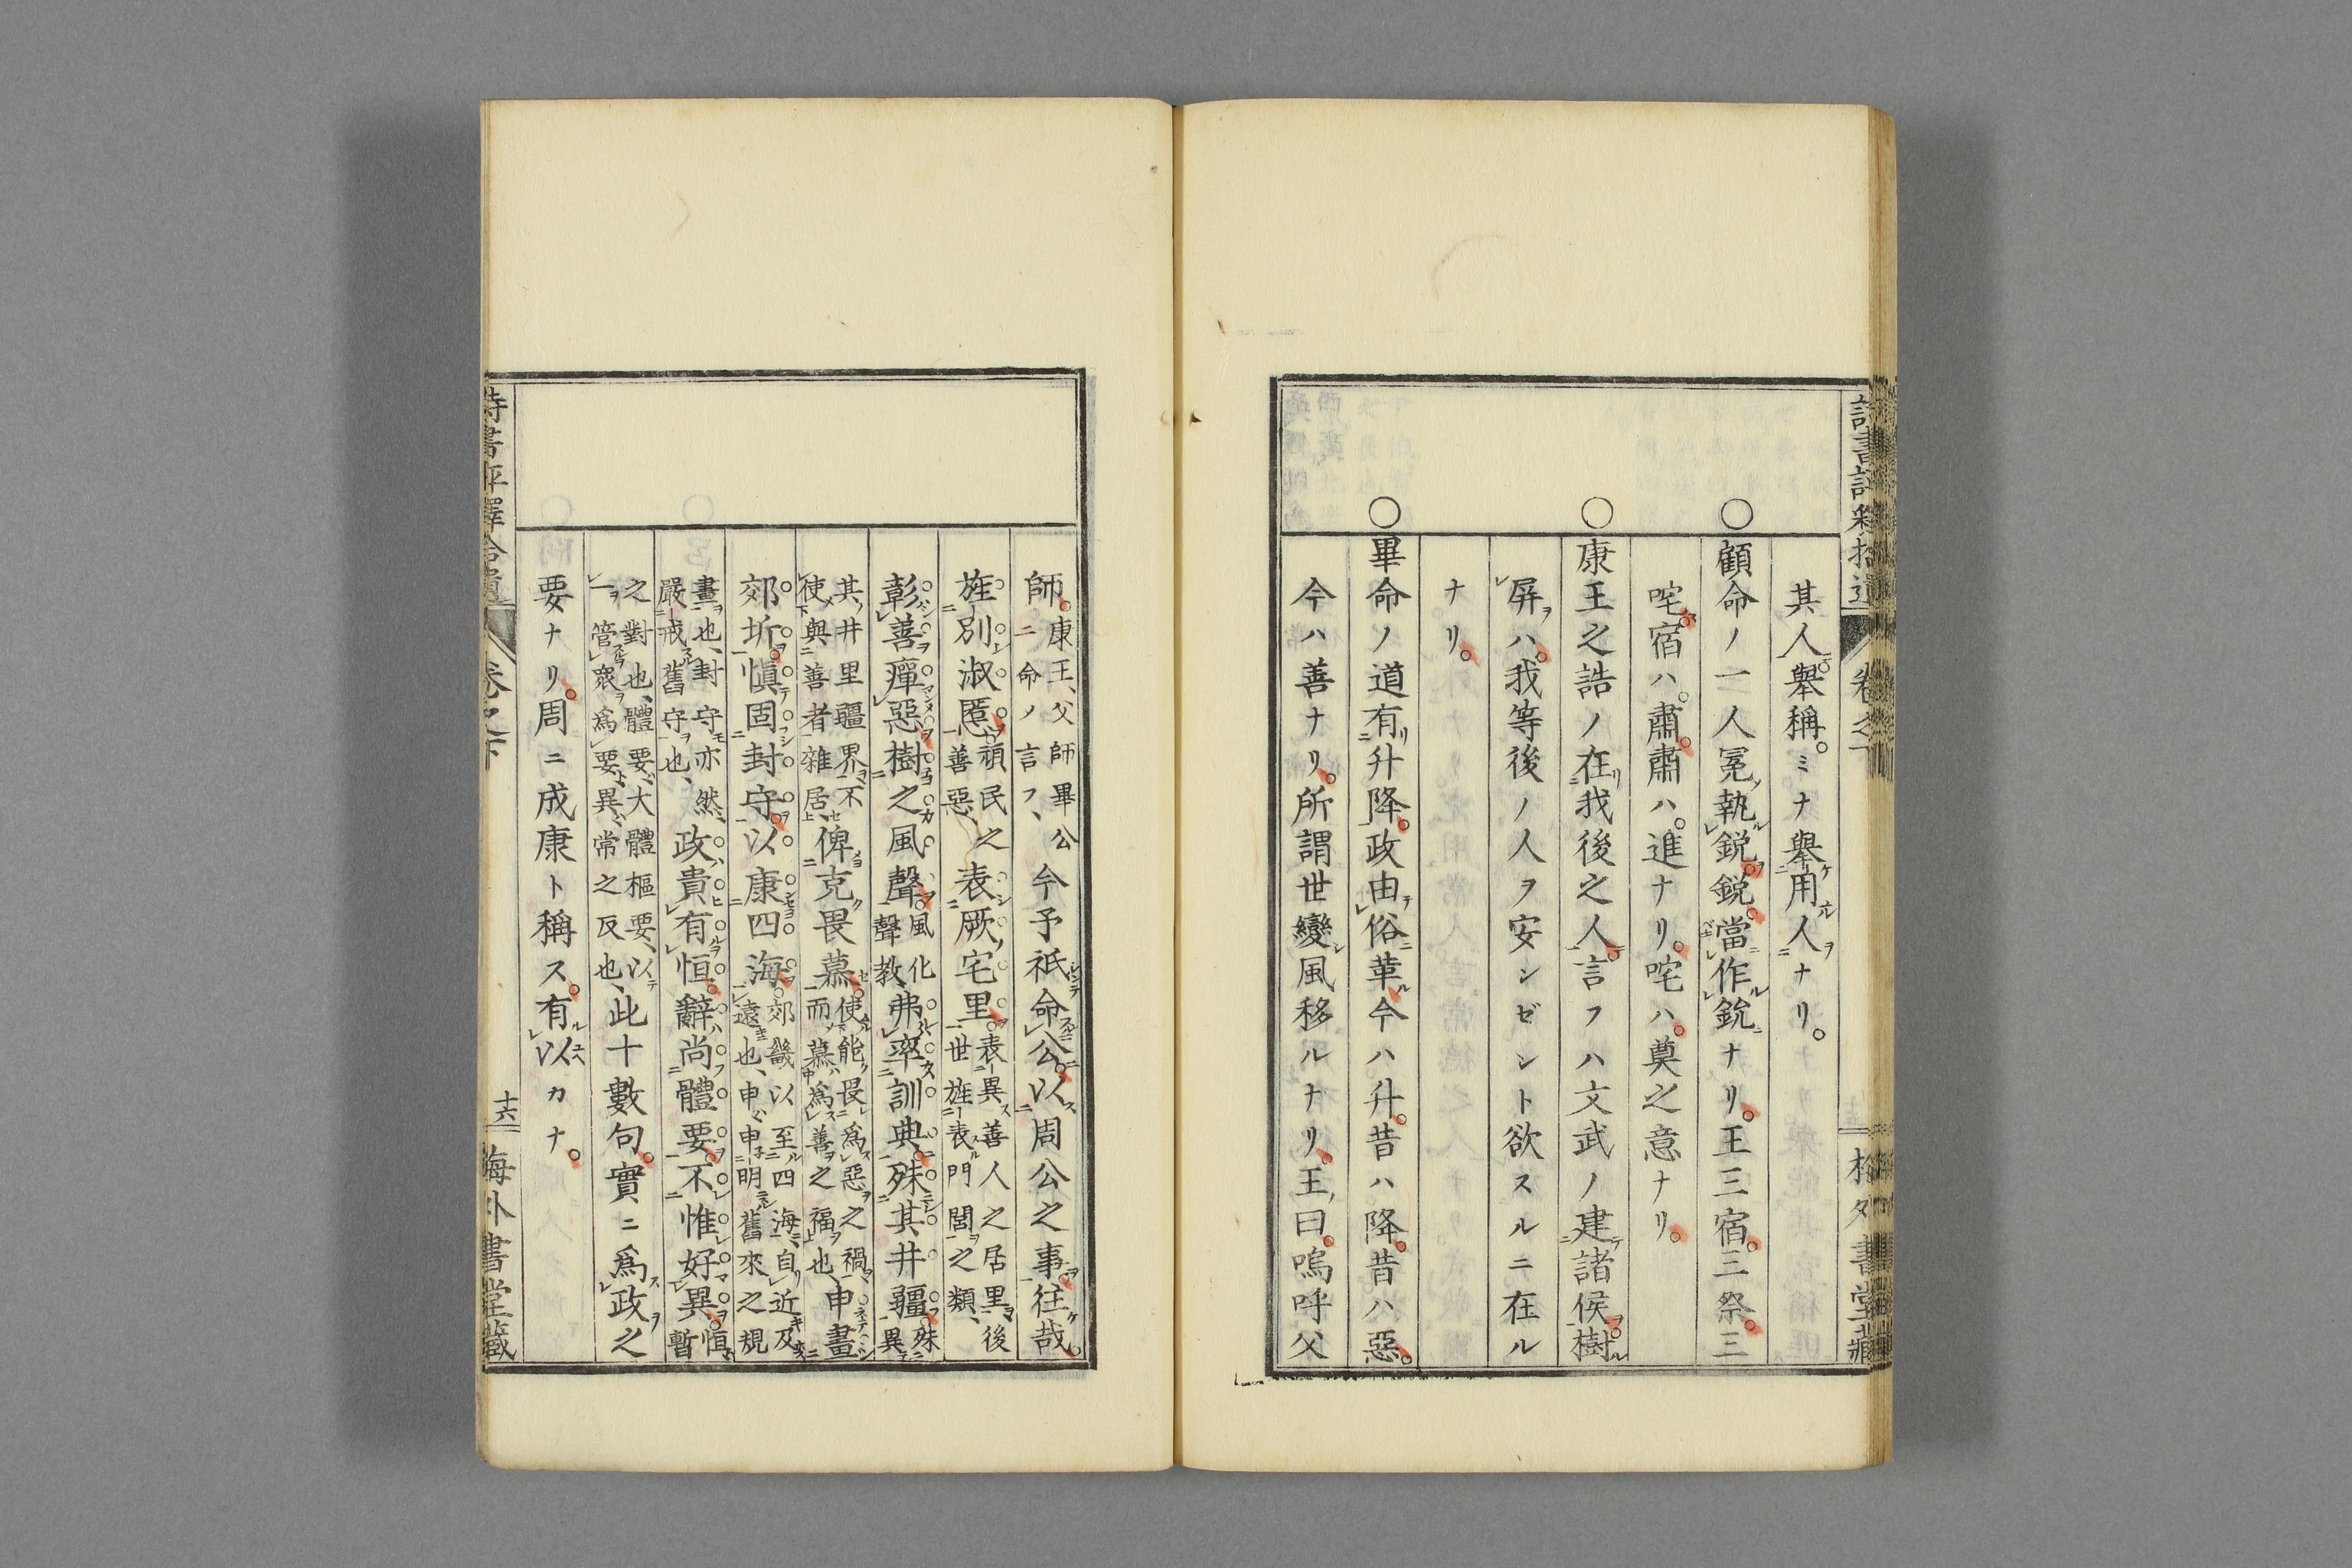 其人舉稱。ミナ舉用人ナリ。
○顧命ノ一人冕執銳。銳當作鈗ナリ。王三宿。三祭。三
咤。宿ハ。肅。肅ハ。進ナリ。咤ハ。奠之意ナリ。
○康王之誥ノ在我後之人。言フハ文武ノ建諸侯。樹
屏ハ。我等後ノ人ヲ安シゼシト欲スルニ在ル
ナリ。
○畢命ノ道有升降。政由俗革。今ハ升。昔ハ降。昔ハ惡。
今ハ善ナリ。所謂世變風移ルナリ。王曰。嗚呼父
師。康王、父師畢公
ニ命ノ言フ、今予祇命公。以周公之事。往哉。
旌別淑慝。頑民之
善惡、表厥宅里。表異善人之居里後
世旌表門閭之類、
彰善癉惡。樹之風聲。風化
聲教、弗率訓典。殊其井疆。殊
異
其井里疆界不
使與善者雜居、俾克畏慕。使能畏爲惡之禍
而慕爲善之福也、申畫
郊圻。愼固封守。以康四海。郊畿以至四海、自近及
遠也、申申明舊來之規
畫也、封守亦然、
嚴戒舊守也、政貴有恒。辭尚體要。不惟好異。恒
暫
之對也、體要、大體樞要、以
一管衆爲要、異、常之反也、此十數句。實ニ爲政之
要ナリ。周ニ成康ト稱ス。有以カナ。
卷之下
十六
海外書堂藏